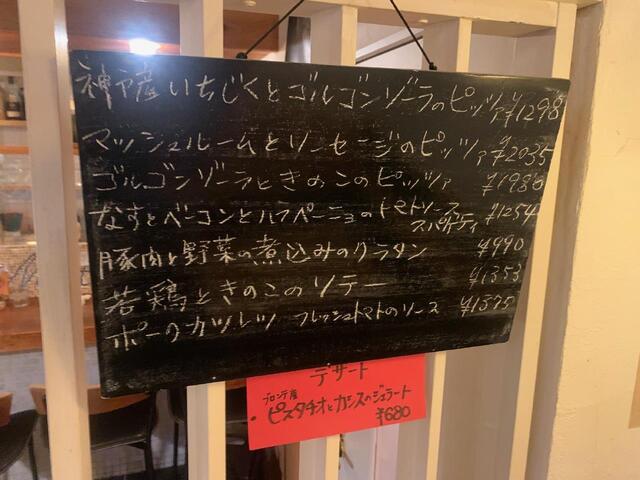 神戸産いちじくとゴルゴンゾーラのピッツァ ¥1298
マッシュルームとソーセージのピッツァ ¥2035
ゴルゴンゾーラときのこのピッツァ ¥1980
なすとベーコンとハラペーニョのトマトソース ¥1254
スパゲッティ
豚肉と野菜の煮込みのグラタン ¥990
若鶏ときのこのソテー ¥1353
ポークカツレツ フレッシュトマトのソース ¥1375
デザート
ブロンテ産
ピスタチオとカシスのジェラート
¥680